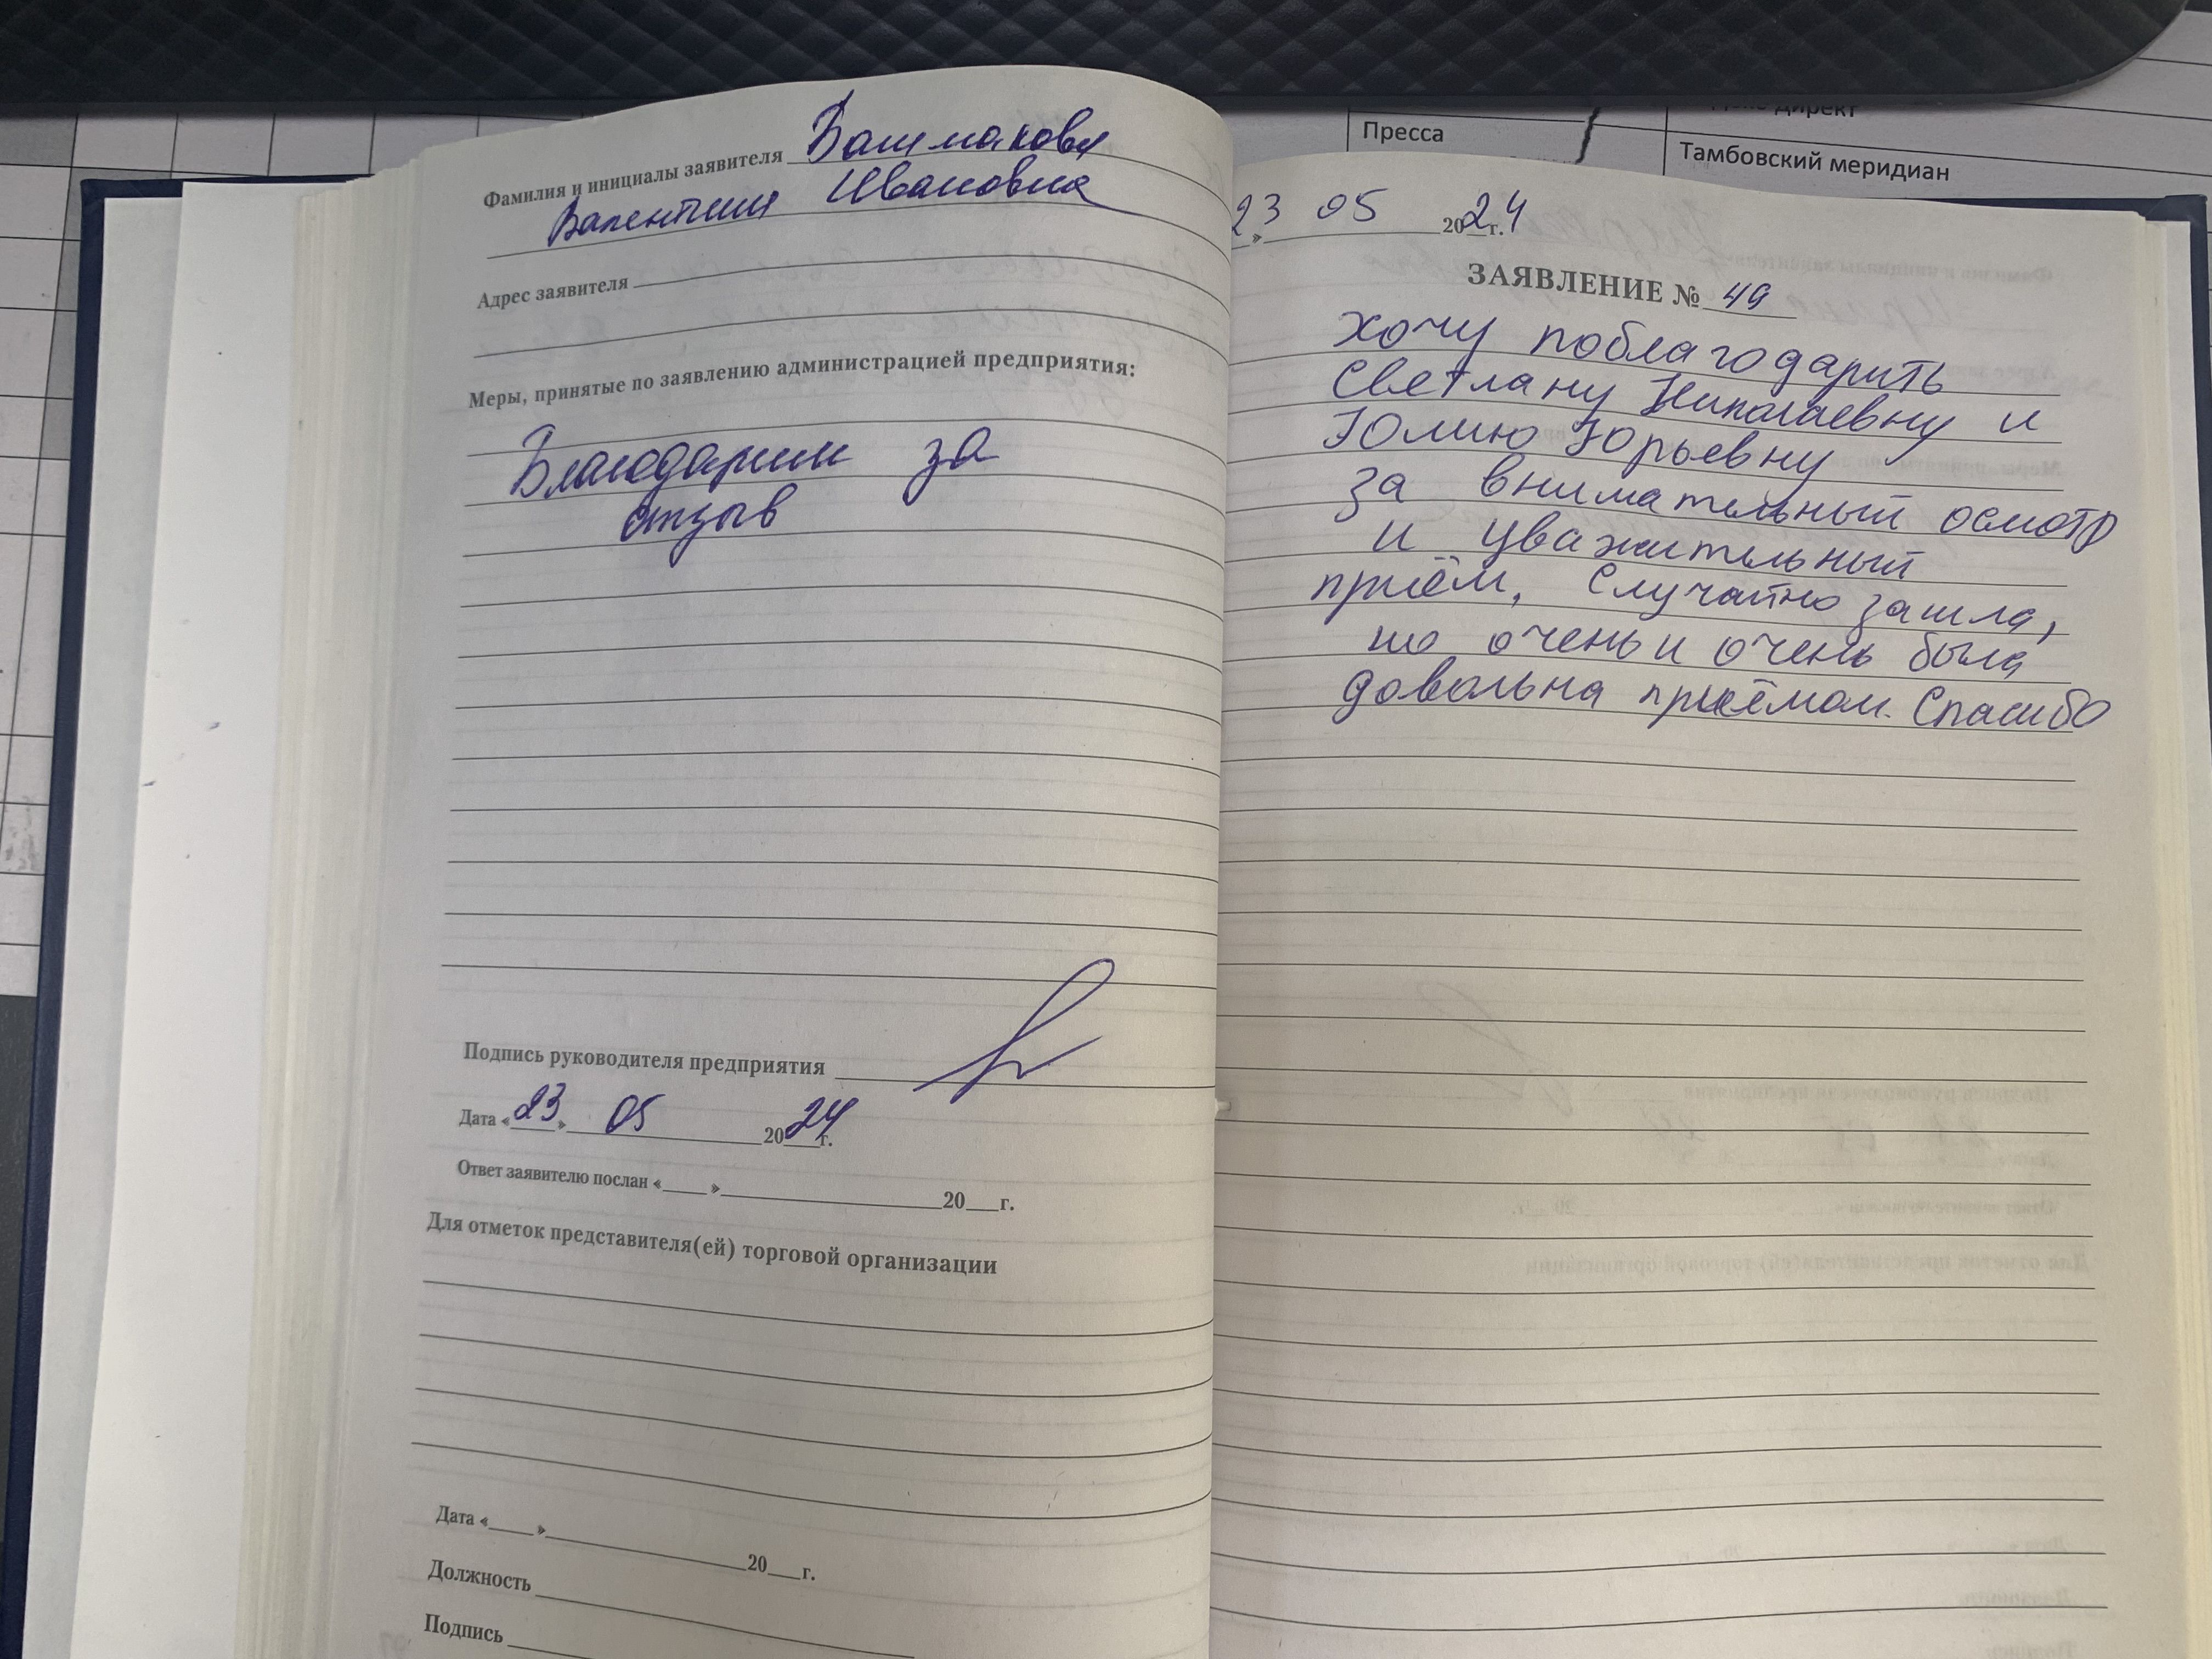 Пресса
Тамбовский меридиан
Фамилия и инициалы заявителя Башмакова
Валентина Ивановна
Адрес заявителя
Меры, принятые по заявлению администрацией предприятия:
Благодарим за
отзыв
Подпись руководителя предприятия
Дата «23» 05 2024 г.
Ответ заявителю послан «___» 20__ г.
Для отметок представителя(ей) торговой организации
Дата «___» 20__ г.
Должность
Подпись
23» 05 2024 г.
ЗАЯВЛЕНИЕ № 49
Хочу поблагодарить
Светлану Николаевну и
Юлию Юрьевну
за внимательный осмотр
и уважительный
приём, Случайно зашла,
но очень и очень была
довольна приёмом. Спасибо